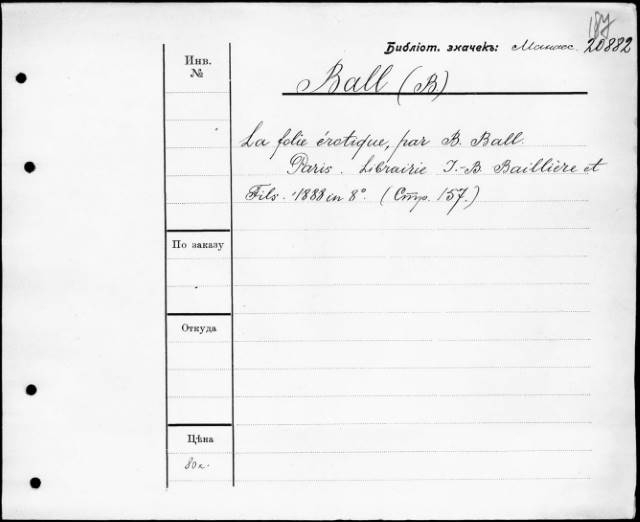 187
Библіот. значекъ: Манасс. 20882
Инв.
№
Ball (B)
La folie érotique, par B. Ball.
Paris. Librairie J.-B. Baillière et
Fils. 1888 in 8°. (Стр. 157.)
По заказу
Откуда
Цѣна
80 к.